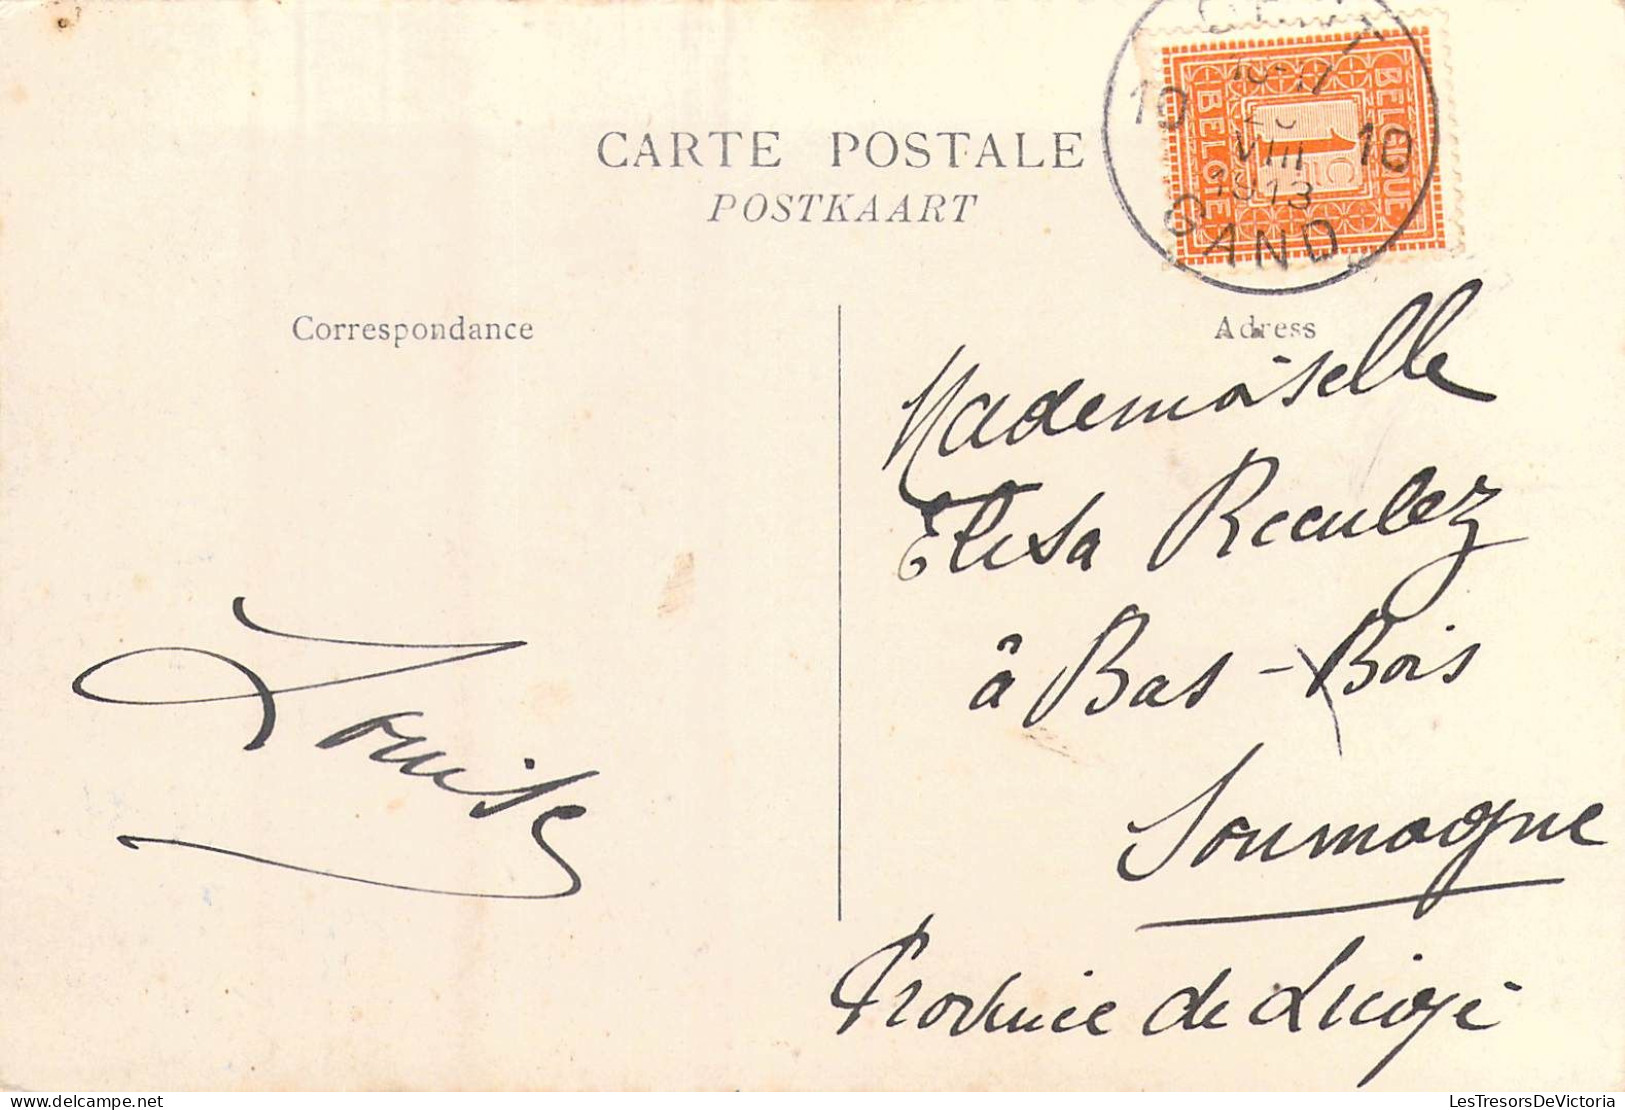 CARTE POSTALE
POSTKAART
GENT
10 10
1913
VIII
GAND
BELGIQUE
1C
BELGIE
Correspondance
Adress
Mademoiselle
Elisa Reculez
à Bas-Bois
Soumagne
Province de Liège
Louise
LesTresorsDeVictoria
delcampe.net